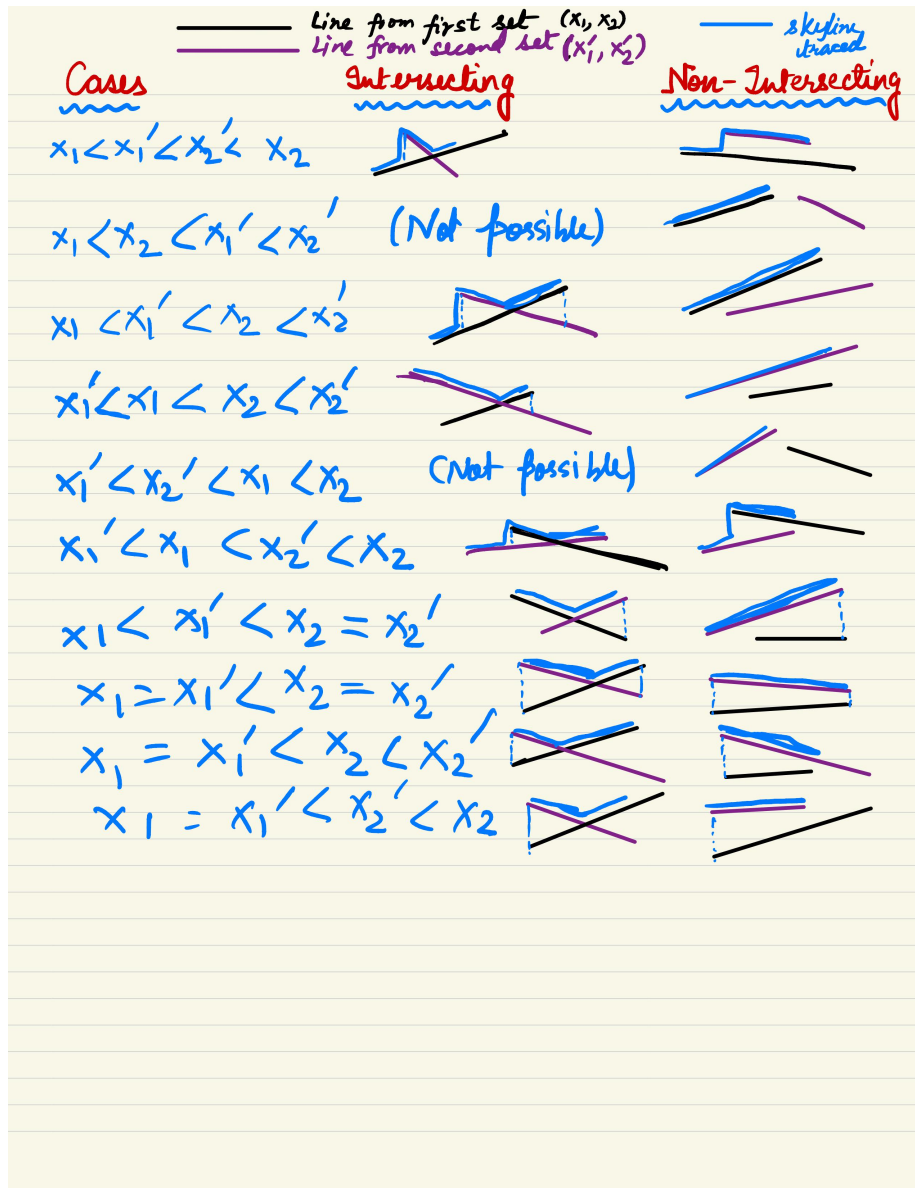 Line from first set (x₁, x₂)
Line from second set (x₁′, x₂′)
skyline traced
Cases Intersecting Non-Intersecting
x₁ < x₁′ < x₂′ < x₂
x₁ < x₂ < x₁′ < x₂′ (Not possible)
x₁ < x₁′ < x₂ < x₂′
x₁′ < x₁ < x₂ < x₂′
x₁′ < x₂′ < x₁ < x₂ (Not possible)
x₁′ < x₁ < x₂′ < x₂
x₁ < x₁′ < x₂ = x₂′
x₁ = x₁′ < x₂ = x₂′
x₁ = x₁′ < x₂ < x₂′
x₁ = x₁′ < x₂′ < x₂